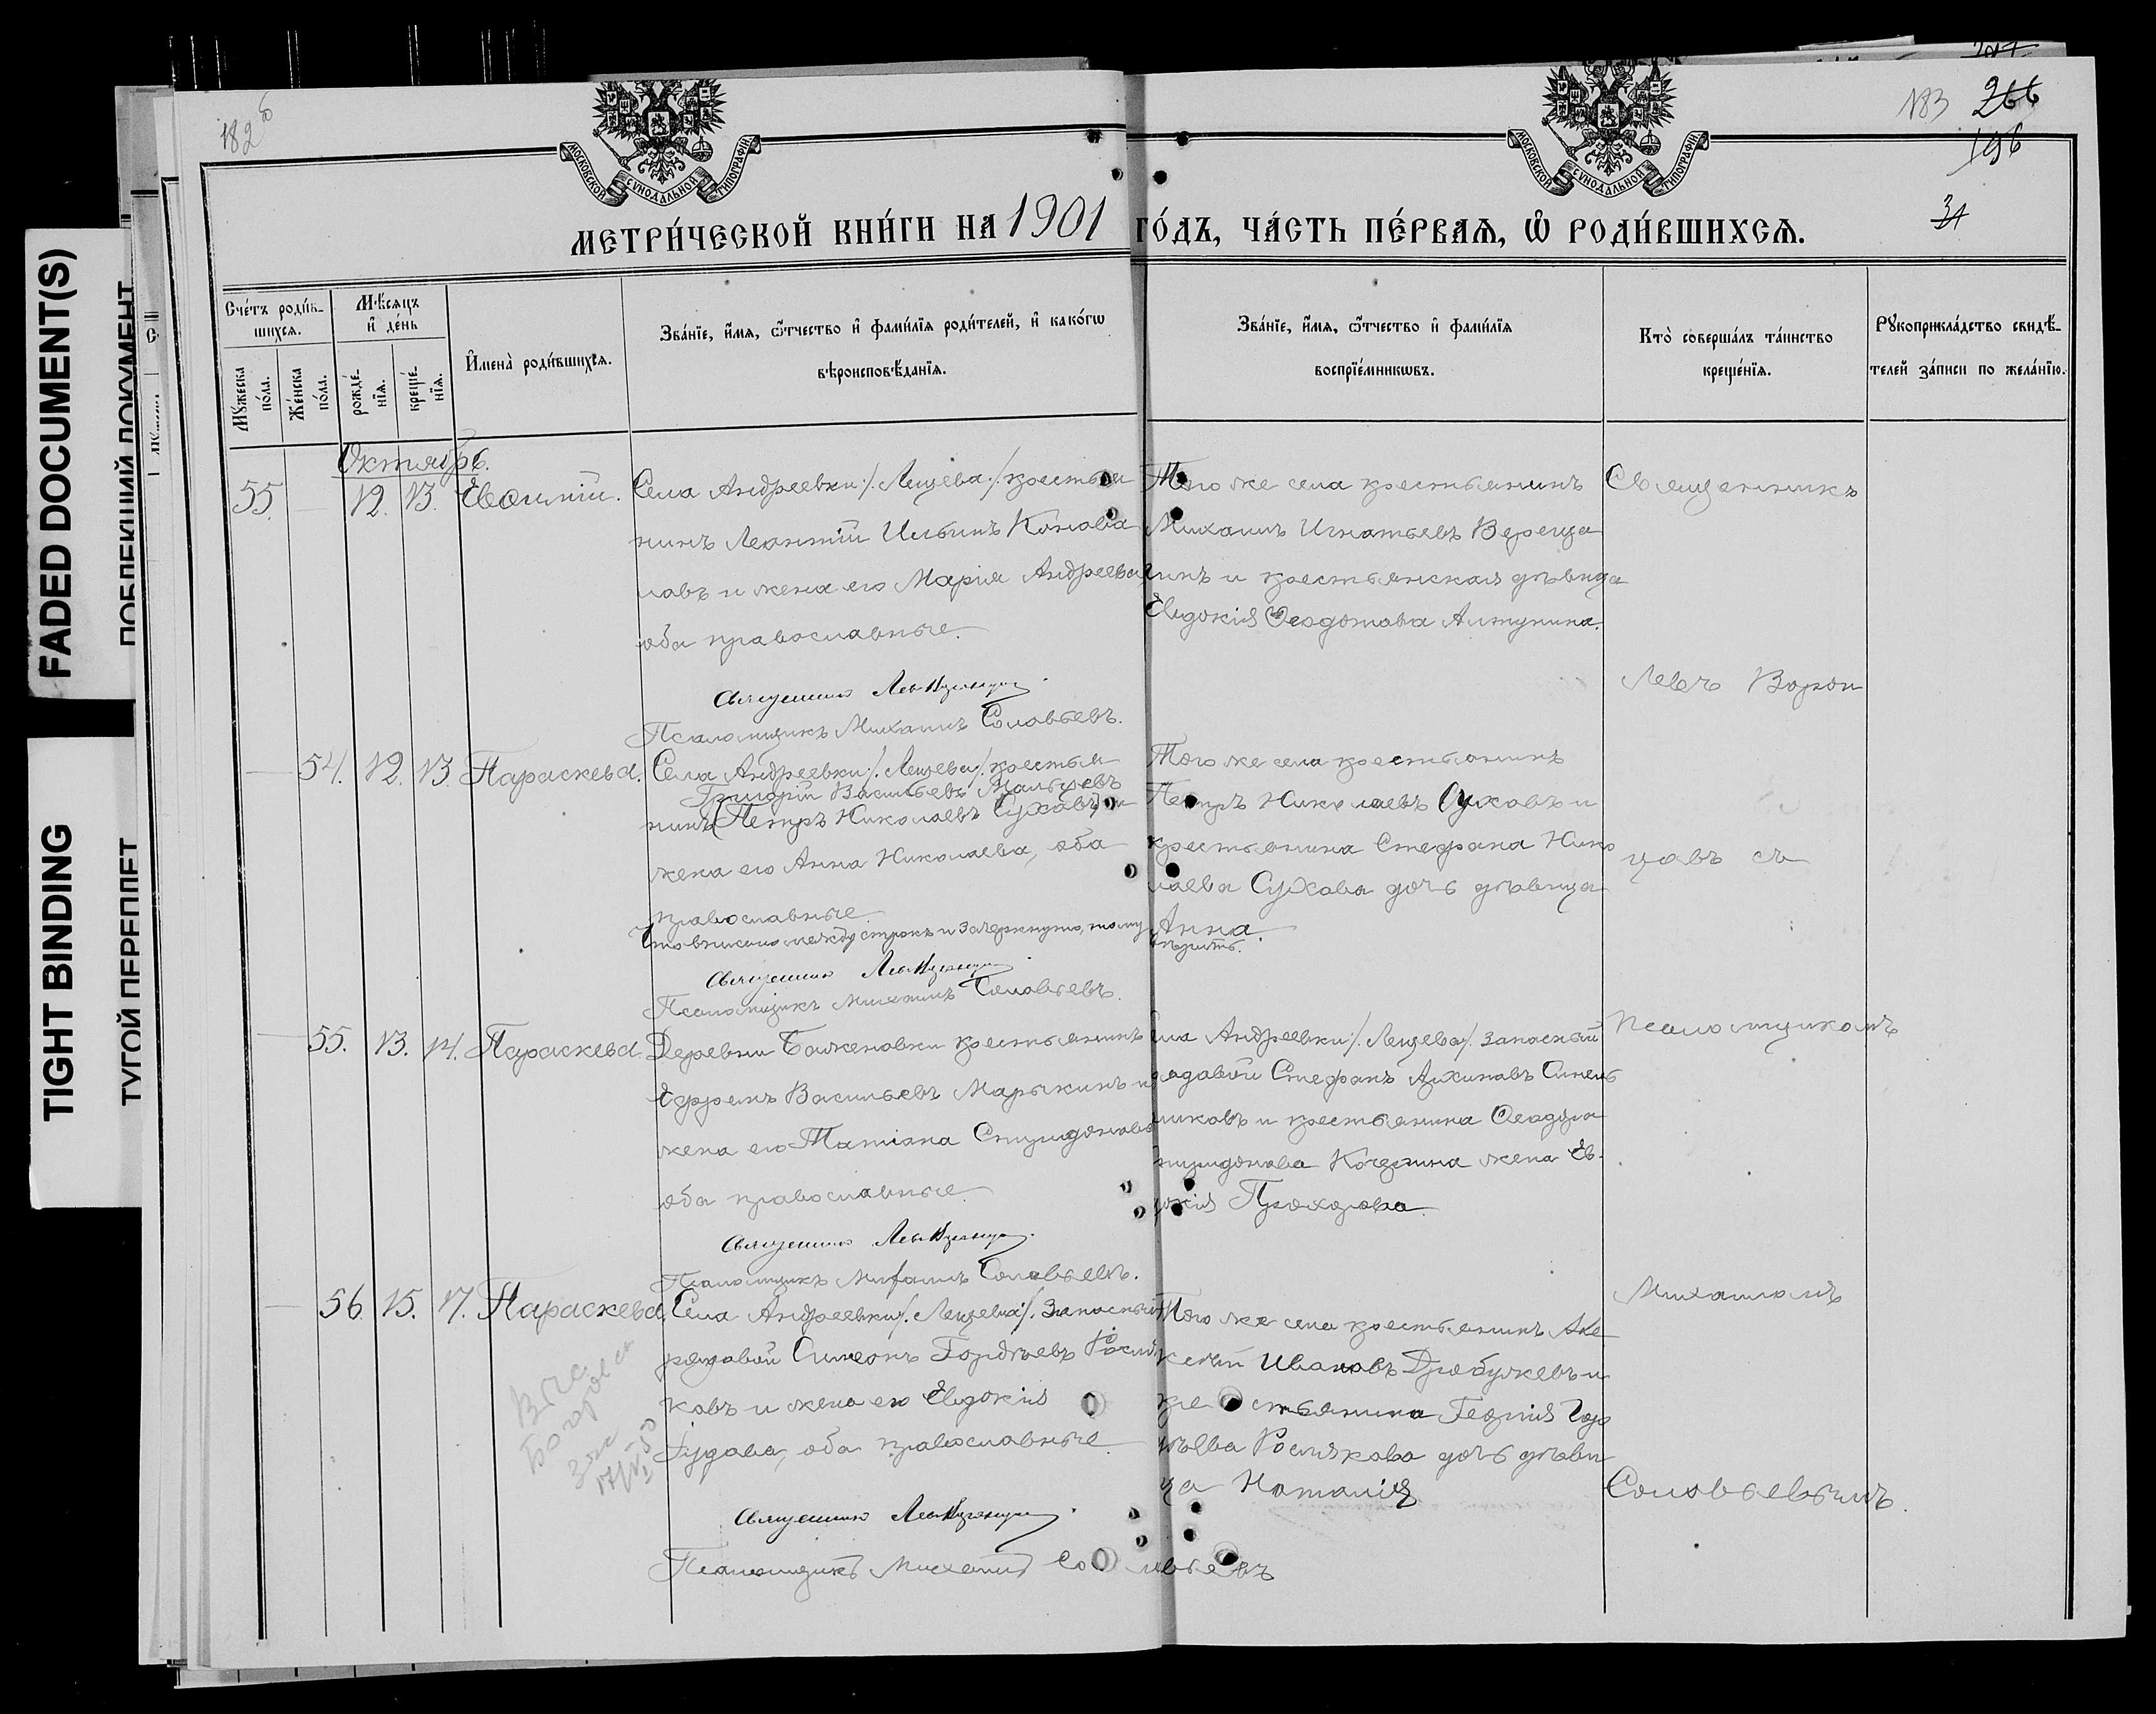 FADED DOCUMENT(S)
TIGHT BINDING
ТУГОЙ ПЕРЕПЛЕТ
182
183 266
196
31
МОСКОВСКОЙ СѴНОДАЛЬНОЙ ТИПОГРАФІИ.
МОСКОВСКОЙ СѴНОДАЛЬНОЙ ТИПОГРАФІИ.
МЕТРИ́ЧЕСКОЙ КНИ́ГИ НА 1901 ГО́ДЪ, ЧА́СТЬ ПЕ́РВАЯ, Ѡ҆ РОДИ́ВШИХСЯ.
Сче́тъ роди́в-
шихся.
Му́жеска по́ла.
Же́нска по́ла.
Мѣ́сяцъ
и҆ де́нь
рожде́-
нїя.
креще́-
нїя.
И҆мена̀ роди́вшихся.
Зва́нїе, и҆́мя, ѻ҆́тчество и҆ фами́лїя роди́телей, и҆ како́гѡ
вѣроисповѣ́данїя.
Зва́нїе, и҆́мя, ѻ҆́тчество и҆ фами́лїя
воспрїе́мникѡвъ.
Кто̀ соверша́лъ та́инство
креще́нїя.
Рꙋкоприкла́дство свидѣ́-
телей за́писи по жела́нїю.
Октябрь.
55. 12. 13. Евѳимій.
Села Андреевки /.Лещева/. крестья
нинъ Леонтій Ильинъ Конова
ловъ и жена его Марія Андреева
оба православные.
Священникъ Левъ
Псаломщикъ Михаилъ Соловьевъ.
Того же села крестьянинъ
Михаилъ Игнатьевъ Вереща
гинъ и крестьянская дѣвица
Евдокія Ѳеодотова Алтунина.
Священникъ
Левъ Ворон
54. 12. 13. Параскева.
Села Андреевки /.Лещева/. крестья
Григорій Васильевъ Мальцевъ
нинъ (Петръ Николаевъ Суховъ) и
жена его Анна Николаева, оба
православные
Что вписано между строкъ и зачеркнуто, тому вѣрить.
Священникъ Левъ
Псаломщикъ Михаилъ Соловьевъ.
Того же села крестьянинъ
Петръ Николаевъ Суховъ и
крестьянина Стефана Нико
лаева Сухова дочь дѣвица
Анна.
цовъ съ
55. 13. 14. Параскева.
Деревни Баженовки крестьянинъ
Ефремъ Васильевъ Марыкинъ и
жена его Татіана Спиридонова
оба православные.
Священникъ Левъ
Псаломщикъ Михаилъ Соловьевъ.
Села Андреевки /.Лещева/. запасный
рядовой Стефанъ
никовъ и крестьянина Ѳеодора
Спиридонова Кочергина жена Ев-
докія Прохорова.
псаломщикомъ
56. 15. 17. Параскева.
Села Андреевки /.Лещева/. запасный
рядовой Симеонъ Гордѣевъ Росля
ковъ и жена его Евдокія
оба православные.
Священникъ Левъ
Псаломщикъ Михаилъ Соловьевъ
Того же села крестьянинъ Але
ксѣй Ивановъ Дробужевъ и
крестьянина Георгія Гор
дѣева Рослякова дочь дѣви
ца Наталія
Михаиломъ
Соловьевымъ.